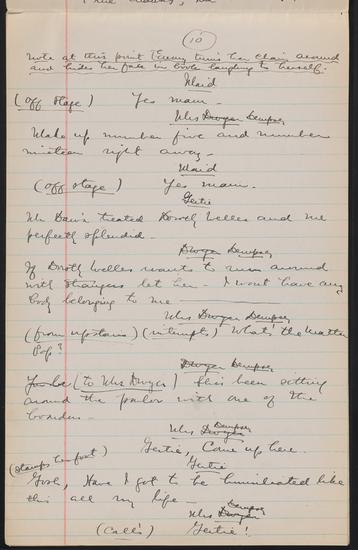 (10)
Note at this point Tenny turns her chair around
and hides her face in book laughing to herself.
Maid
(off stage) Yes mam -
Mrs Dwyer Dempsey
Wake up number five and number
nineteen right away -
Maid
(off stage) Yes mam.
Gertie
Mr Davis treated Doroth Welles and me
perfectly splendid -
Dwyer Dempsey
If Doroth Welles wants to run around
with strangers let her - I wont have any
body belonging to me
Mrs Dwyer Dempsey
(from upstairs) (interrupts) What's the matter
Pop?
Dwyer Dempsey
(to Mrs Dwyer) She's been sitting
around the parlor with one of the
boarders -
Mrs Dwyer Dempsey
Gertie, Come up here.
Gertie
(stamps her foot)
Gosh, Have I got to be humiliated like
this all my life -
Mrs Dwyer Dempsey
(calls) Gertie!